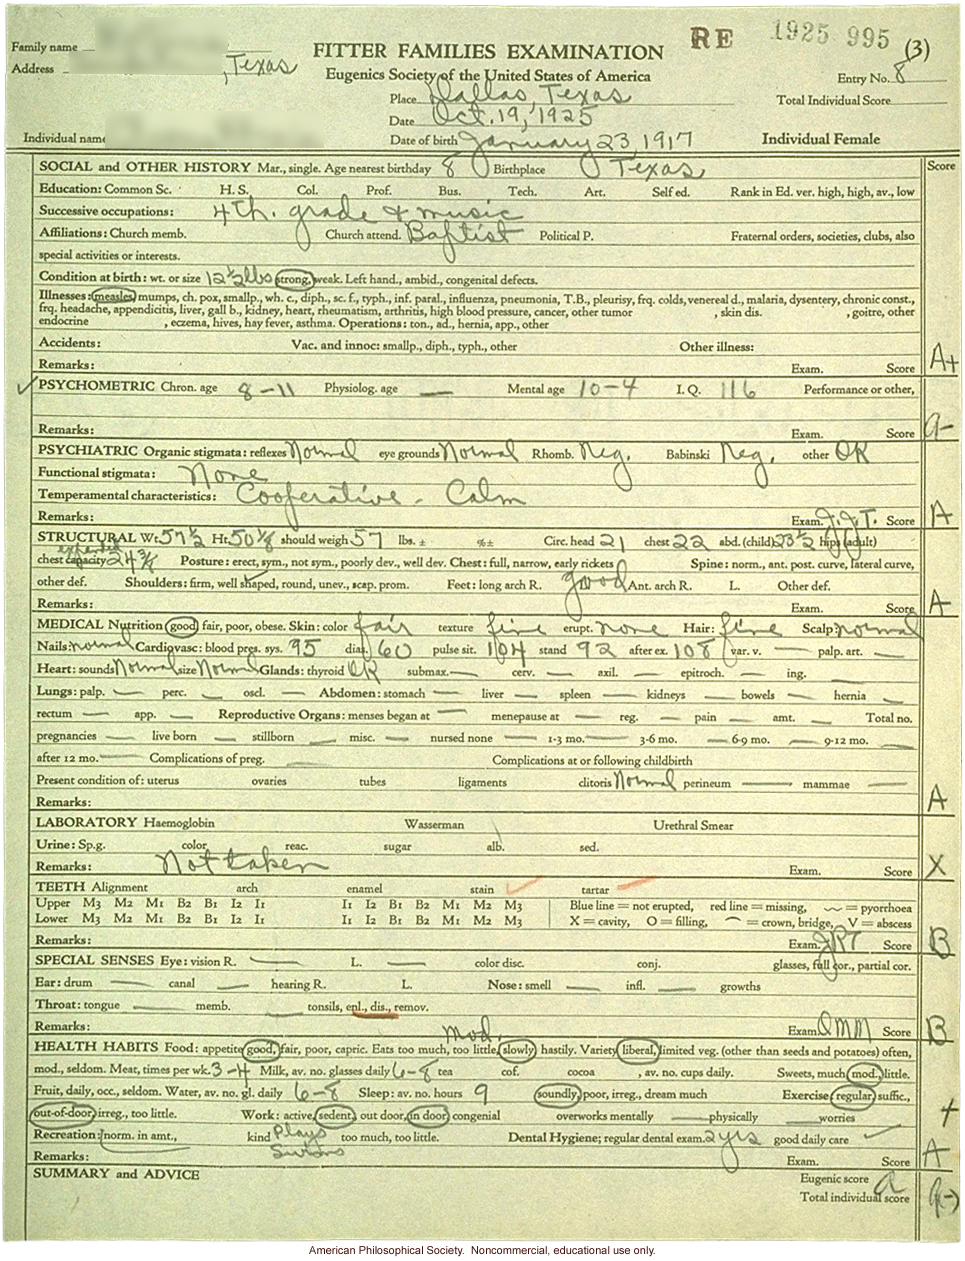 RE 1925 995 (3)
Family name
FITTER FAMILIES EXAMINATION
Address , Texas
Eugenics Society of the United States of America
Entry No. 8
Place Dallas, Texas
Total Individual Score
Date Oct. 19, 1925
Individual name Date of birth January 23, 1917 Individual Female
SOCIAL and OTHER HISTORY Mar., single. Age nearest birthday 8 Birthplace Texas Score
Education: Common Sc. H. S. Col. Prof. Bus. Tech. Art. Self ed. Rank in Ed. ver. high, high, av., low
Successive occupations: 4th. grade & music
Affiliations: Church memb. Church attend. Baptist Political P. Fraternal orders, societies, clubs, also
special activities or interests.
Condition at birth: wt. or size 12 1/2 lbs strong, weak. Left hand., ambid., congenital defects.
Illnesses: measles, mumps, ch. pox, smallp., wh. c., diph., sc. f., typh., inf. paral., influenza, pneumonia, T.B., pleurisy, frq. colds, venereal d., malaria, dysentery, chronic const.,
frq. headache, appendicitis, liver, gall b., kidney, heart, rheumatism, arthritis, high blood pressure, cancer, other tumor , skin dis. , goitre, other
endocrine , eczema, hives, hay fever, asthma. Operations: ton., ad., hernia, app., other
Accidents: Vac. and innoc: smallp., diph., typh., other Other illness:
Remarks: Exam. Score A+
PSYCHOMETRIC Chron. age 8-11 Physiolog. age — Mental age 10-4 I. Q. 116 Performance or other,
Remarks: Exam. Score a-
PSYCHIATRIC Organic stigmata: reflexes Normal eye grounds Normal Rhomb. Neg. Babinski Neg. other OK
Functional stigmata: None
Temperamental characteristics: Cooperative - Calm
Remarks: Exam. J.J.T. Score A
STRUCTURAL Wt. 57 1/2 Ht. 50 1/8 should weigh 57 lbs. ± %± Circ. head 21 chest 22 abd. (child) 23 1/2 hips (adult)
expanded
chest capacity 24 3/4 Posture: erect, sym., not sym., poorly dev., well dev. Chest: full, narrow, early rickets Spine: norm., ant. post. curve, lateral curve,
other def. Shoulders: firm, well shaped, round, unev., scap. prom. Feet: long arch R. good Ant. arch R. L. Other def.
Remarks: Exam. Score A
MEDICAL Nutrition good, fair, poor, obese. Skin: color fair texture fine erupt. none Hair: fine Scalp: normal
Nails: normal Cardiovasc: blood pres. sys. 95 dia. 60 pulse sit. 104 stand 92 after ex. 108 var. v. — palp. art. —
Heart: sounds Normal size Normal Glands: thyroid OK submax. — cerv. — axil. — epitroch. — ing. —
Lungs: palp. — perc. — oscl. — Abdomen: stomach — liver — spleen — kidneys — bowels — hernia —
rectum — app. — Reproductive Organs: menses began at — menopause at — reg. — pain — amt. — Total no.
pregnancies — live born — stillborn — misc. — nursed none — 1-3 mo. — 3-6 mo. — 6-9 mo. — 9-12 mo. —
after 12 mo. — Complications of preg. — Complications at or following childbirth
Present condition of: uterus ovaries tubes ligaments clitoris Normal perineum — mammae —
Remarks: A
LABORATORY Haemoglobin Wasserman Urethral Smear
Urine: Sp.g. color reac. sugar alb. sed.
Remarks: Not taken Exam. Score X
TEETH Alignment arch enamel stain tartar
Upper M3 M2 M1 B2 B1 I2 I1 I1 I2 B1 B2 M1 M2 M3 Blue line = not erupted, red line = missing, = pyorrhoea
Lower M3 M2 M1 B2 B1 I2 I1 I1 I2 B1 B2 M1 M2 M3 X = cavity, O = filling, = crown, bridge, V = abscess
Remarks: Exam. Score B
SPECIAL SENSES Eye: vision R. — L. — color disc. conj. glasses, full cor., partial cor.
Ear: drum — canal — hearing R. L. Nose: smell — infl. — growths
Throat: tongue — memb. — tonsils, enl., dis., remov.
mod.
Remarks: Exam. OMM Score B
HEALTH HABITS Food: appetite good, fair, poor, capric. Eats too much, too little, slowly, hastily. Variety liberal, limited veg. (other than seeds and potatoes) often,
mod., seldom. Meat, times per wk. 3-4 Milk, av. no. glasses daily 6-8 tea cof. cocoa , av. no. cups daily. Sweets, much mod. little.
Fruit, daily, occ., seldom. Water, av. no. gl. daily 6-8 Sleep: av. no. hours 9 soundly, poor, irreg., dream much Exercise regular suffic.,
out-of-door, irreg., too little. Work: active, sedent. out door, in door, congenial overworks mentally — physically — worries +
Recreation: norm. in amt., kind Plays too much, too little. Dental Hygiene; regular dental exam. 2 yrs good daily care
Swims
Remarks: Exam. Score A-
SUMMARY and ADVICE Eugenic score a
Total individual score
American Philosophical Society. Noncommercial, educational use only.